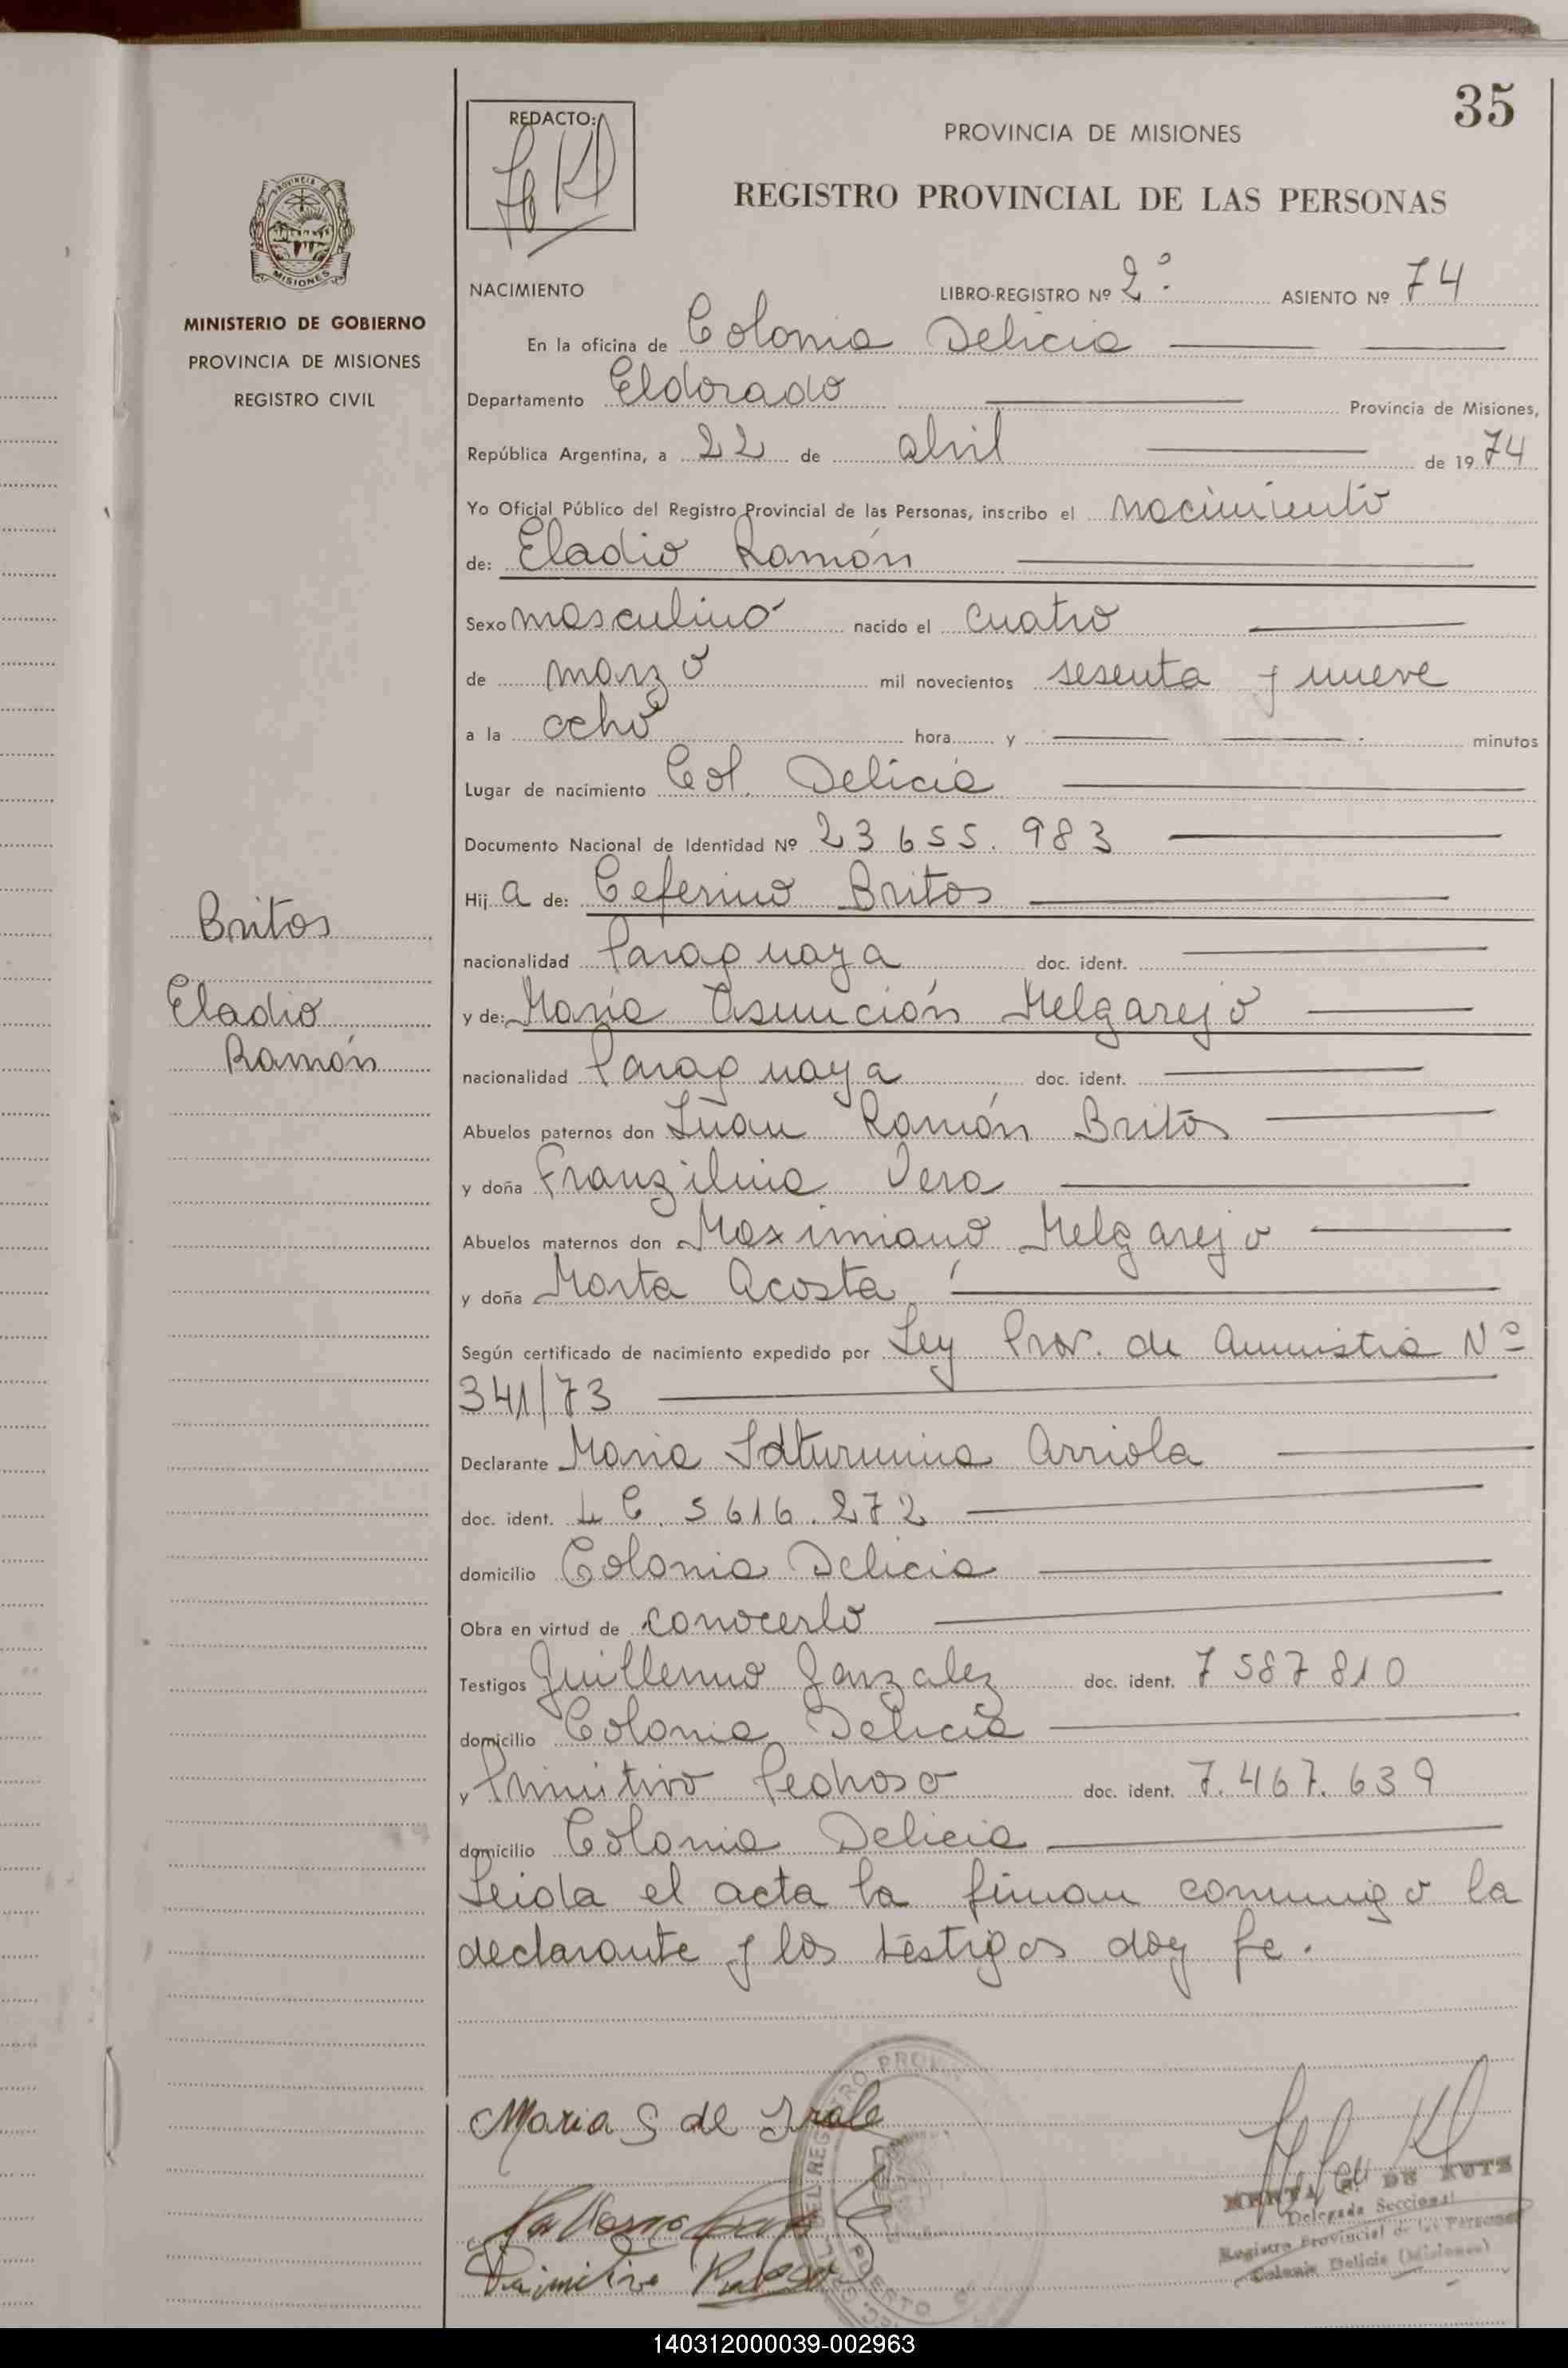 35
REDACTO:
PROVINCIA DE MISIONES
REGISTRO PROVINCIAL DE LAS PERSONAS
PROVINCIA DE
MISIONES
MINISTERIO DE GOBIERNO
PROVINCIA DE MISIONES
REGISTRO CIVIL
NACIMIENTO LIBRO-REGISTRO Nº 2º. ASIENTO Nº 74
En la oficina de Colonia Delicia
Departamento Eldorado Provincia de Misiones,
República Argentina, a 22 de abril de 1974
Yo Oficial Público del Registro Provincial de las Personas, inscribo el nacimiento
de: Eladio Ramón
Sexo masculino nacido el cuatro
de marzo mil novecientos sesenta y nueve
a la ocho hora y minutos
Lugar de nacimiento Col. Delicia
Documento Nacional de Identidad Nº 23 655.983
Hij a de: Ceferino Britos
nacionalidad Paraguaya doc. ident.
y de: María Asunción Melgarejo
nacionalidad Paraguaya doc. ident.
Abuelos paternos don Juan Ramón Britos
y doña Franzilina Vera
Abuelos maternos don Maximiano Melgarejo
y doña Marta Acosta
Según certificado de nacimiento expedido por Ley Prov. de Amnistia Nº
341/73
Declarante Maria Saturnina Arriola
doc. ident. L C. 5616.272
domicilio Colonia Delicia
Obra en virtud de conocerlo
Testigos Guillermo Gonzalez doc. ident. 7587810
domicilio Colonia Delicia
y Primitivo Pedroso doc. ident. 7.467.639
domicilio Colonia Delicia
Leida el acta la firman conmigo la
declarante y los testigos doy fe.
Britos
Eladio
Ramón
Maria S de Irale
Primitivo
DE KUTZ
Delegada Seccional
Registro Provincial de las Personas
Colonia Delicia (Misiones)
140312000039-002963